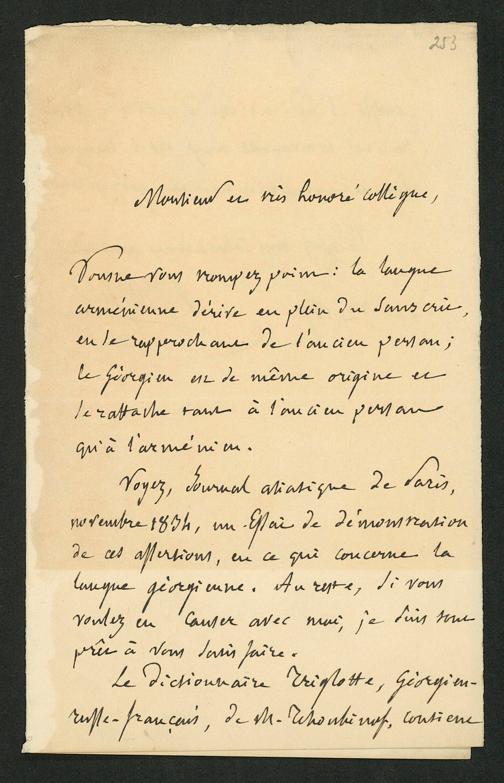 253
Monsieur et très honoré collègue,
Vous ne vous trompez point: la langue
arménienne dérive en plein du Sanscrit,
en se rapprochant de l'ancien persan;
le Géorgien est de même origine et
se rattache tant à l'ancien persan
qu'à l'arménien.
Voyez, Journal asiatique de Paris,
novembre 1834, un Essai de démonstration
de ces assertions, en ce qui concerne la
langue géorgienne. Au reste, si vous
voulez en causer avec moi, je suis tout
prêt à vous satisfaire.
Le Dictionnaire Triglotte, Géorgien-
russe-français, de M. Tchoubinof, contient